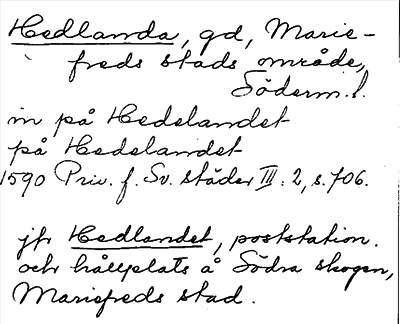 Hedlanda, gd, Marie-
freds stads område,
Söderm.l.
in på Hedelandet
på Hedelandet
1590 Priv. f. Sv. städer III: 2, s. 706.
jfr Hedlandet, poststation.
och hållplats å Södra skogen,
Mariefreds stad.